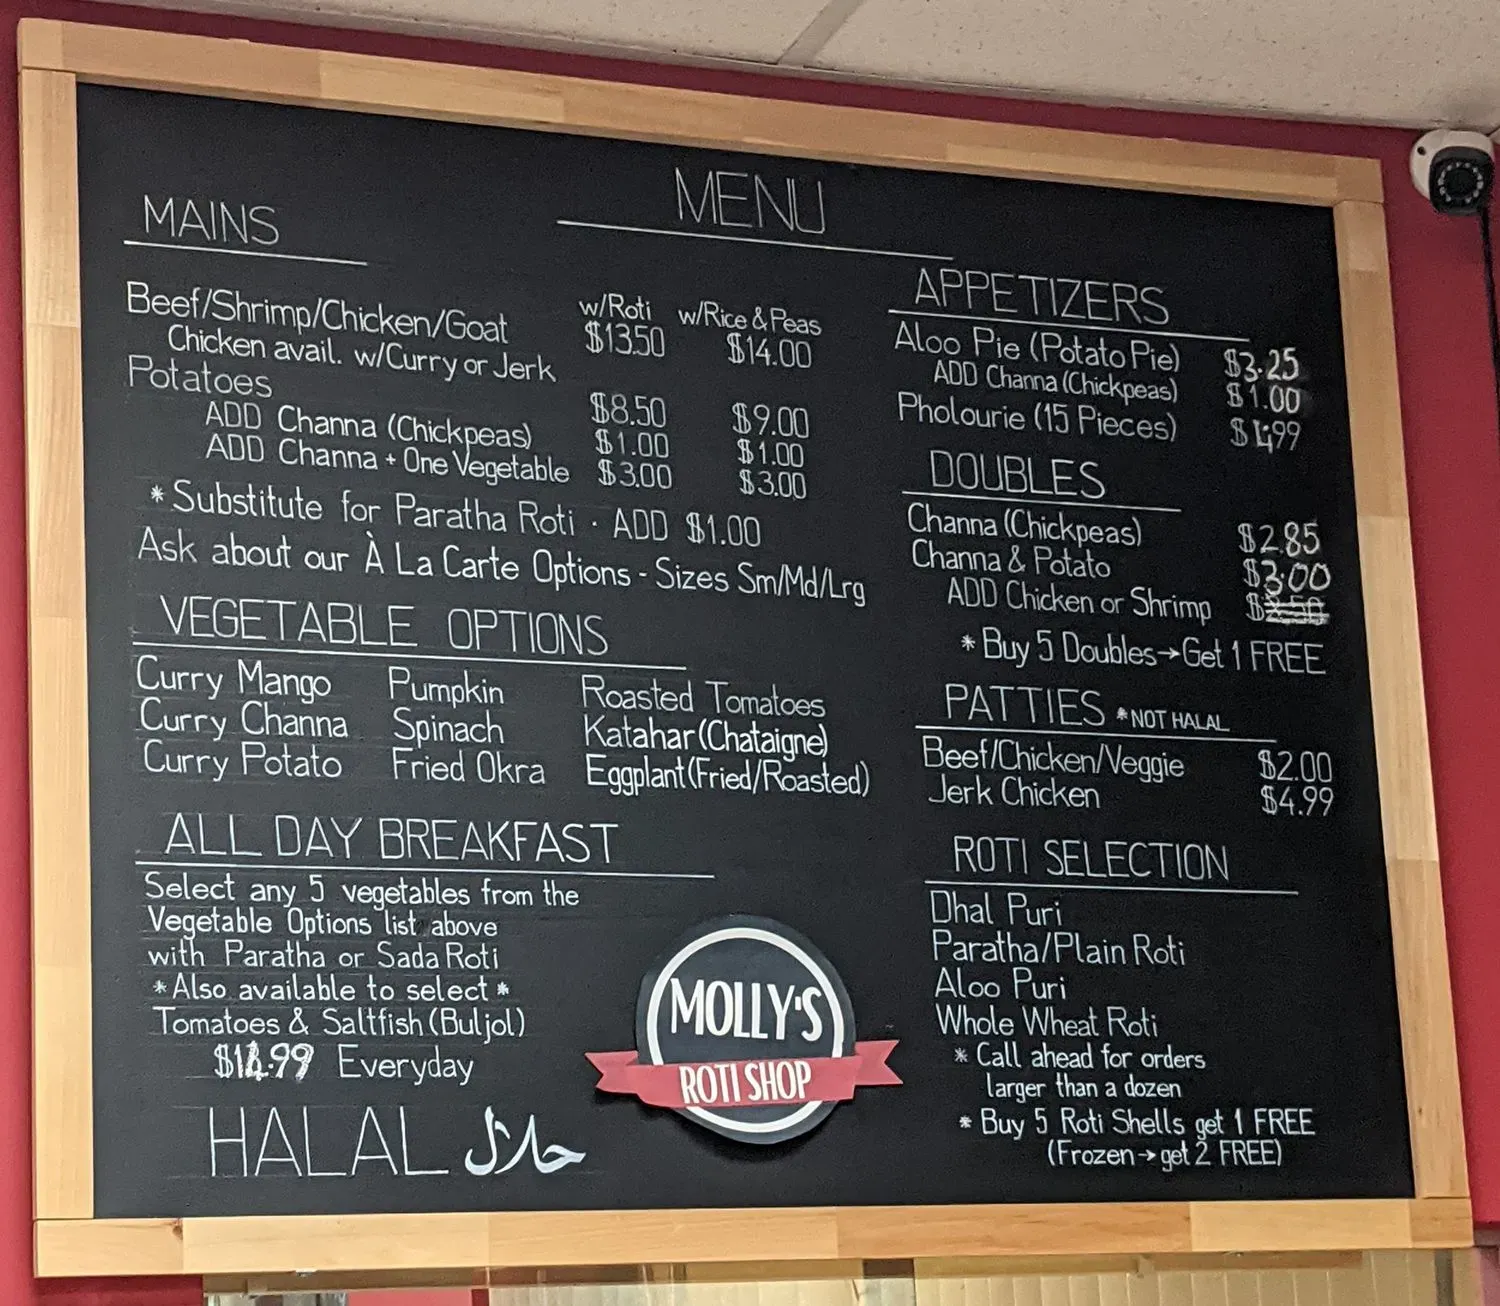 MENU
MAINS
w/Roti w/Rice & Peas
Beef/Shrimp/Chicken/Goat $13.50 $14.00
Chicken avail. w/Curry or Jerk
Potatoes $8.50 $9.00
ADD Channa (Chickpeas) $1.00 $1.00
ADD Channa + One Vegetable $3.00 $3.00
* Substitute for Paratha Roti · ADD $1.00
Ask about our À La Carte Options - Sizes Sm/Md/Lrg
VEGETABLE OPTIONS
Curry Mango Pumpkin Roasted Tomatoes
Curry Channa Spinach Katahar (Chataigne)
Curry Potato Fried Okra Eggplant (Fried/Roasted)
ALL DAY BREAKFAST
Select any 5 vegetables from the
Vegetable Options list above
with Paratha or Sada Roti
* Also available to select *
Tomatoes & Saltfish (Buljol)
Everyday
HALAL حلال
MOLLY'S
ROTI SHOP
APPETIZERS
Aloo Pie (Potato Pie) $3.25
ADD Channa (Chickpeas) $1.00
Pholourie (15 Pieces)
DOUBLES
Channa (Chickpeas) $2.85
Channa & Potato $3.00
ADD Chicken or Shrimp
* Buy 5 Doubles → Get 1 FREE
PATTIES * NOT HALAL
Beef/Chicken/Veggie $2.00
Jerk Chicken $4.99
ROTI SELECTION
Dhal Puri
Paratha/Plain Roti
Aloo Puri
Whole Wheat Roti
* Call ahead for orders
larger than a dozen
* Buy 5 Roti Shells get 1 FREE
(Frozen → get 2 FREE)